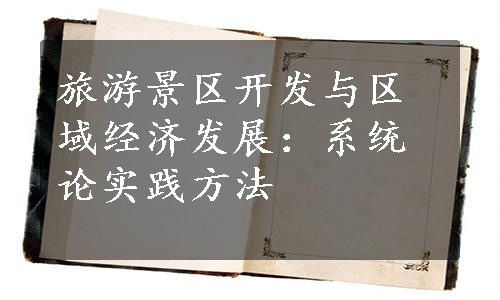 旅游景区开发与区
域经济发展：系统
论实践方法